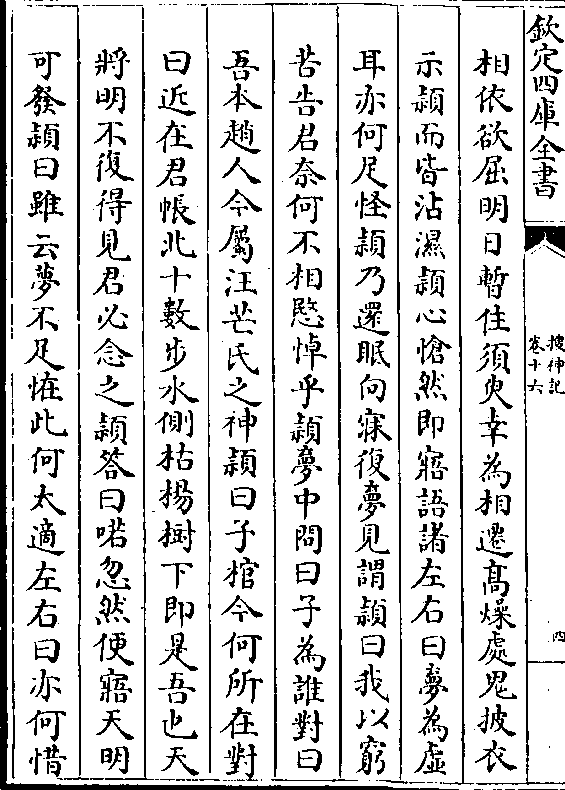 欽定四庫全書
搜神記
卷十六
四
相依欲屈明日暫住須臾幸為相遷髙燥處鬼披衣
示頴而皆沾濕頴心愴然即寤語諸左右曰夢為虛
耳亦何足怪頴乃還眠向寐復夢見謂頴曰我以窮
苦告君奈何不相愍悼乎頴夢中問曰子為誰對曰
吾本趙人今屬汪芒氏之神頴曰子棺今何所在對
曰近在君帳北十數步水側枯楊樹下即是吾也天
將明不復得見君必念之頴答曰喏忽然便寤天明
可發頴曰雖云夢不足恠此何太適左右曰亦何惜